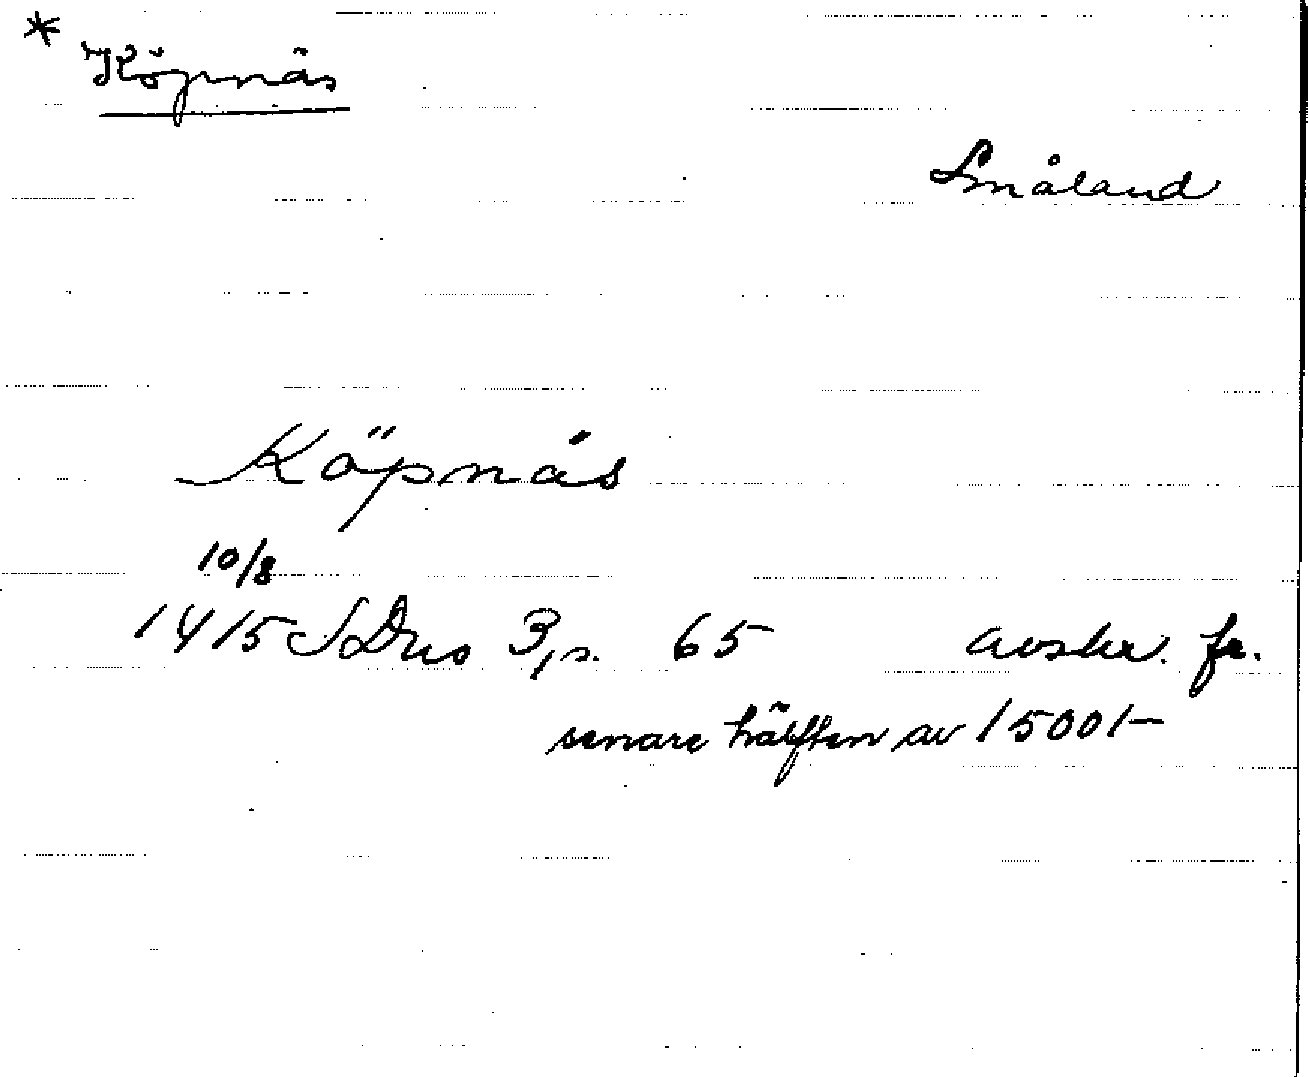 * Köpnäs
Småland
Köpnäs
10/8
1415 SDns 3, s. 65 avskr. fr.
senare hälften av 1500t